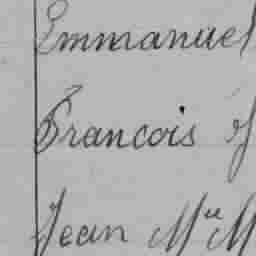 Emmanuel
Francois
Jean Mie M